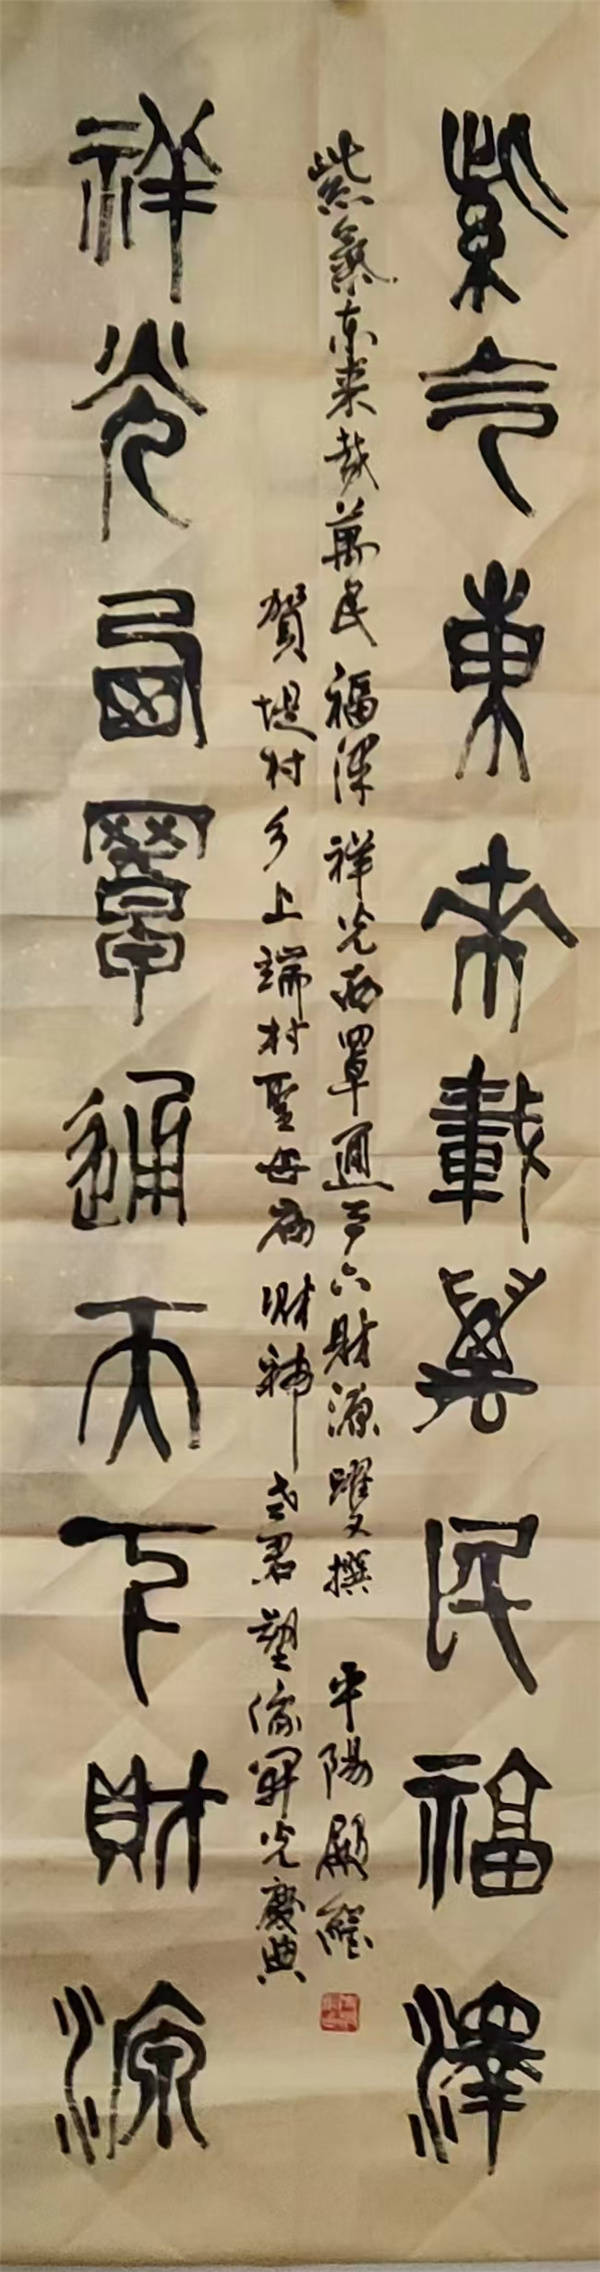 紫气東来載萬民福澤
紫氣东来载萬民福泽祥光西罩通天下財源躍文撰 平陽
賀堤村乡上端村聖母庙財神老君塑像開光慶典
祥光西罩通天下財源